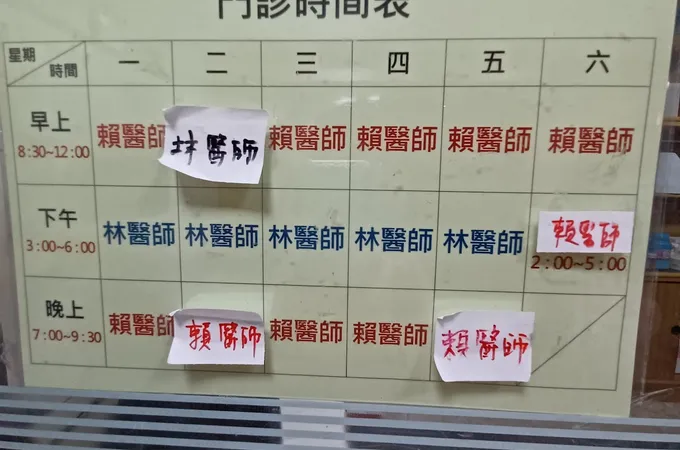 門診時間表
星期 一 二 三 四 五 六
時間
早上 賴醫師 林醫師 賴醫師 賴醫師 賴醫師 賴醫師
8:30~12:00
下午 林醫師 林醫師 林醫師 林醫師 林醫師 賴醫師
3:00~6:00 2:00~5:00
晚上 賴醫師 賴醫師 賴醫師 賴醫師 賴醫師
7:00~9:30